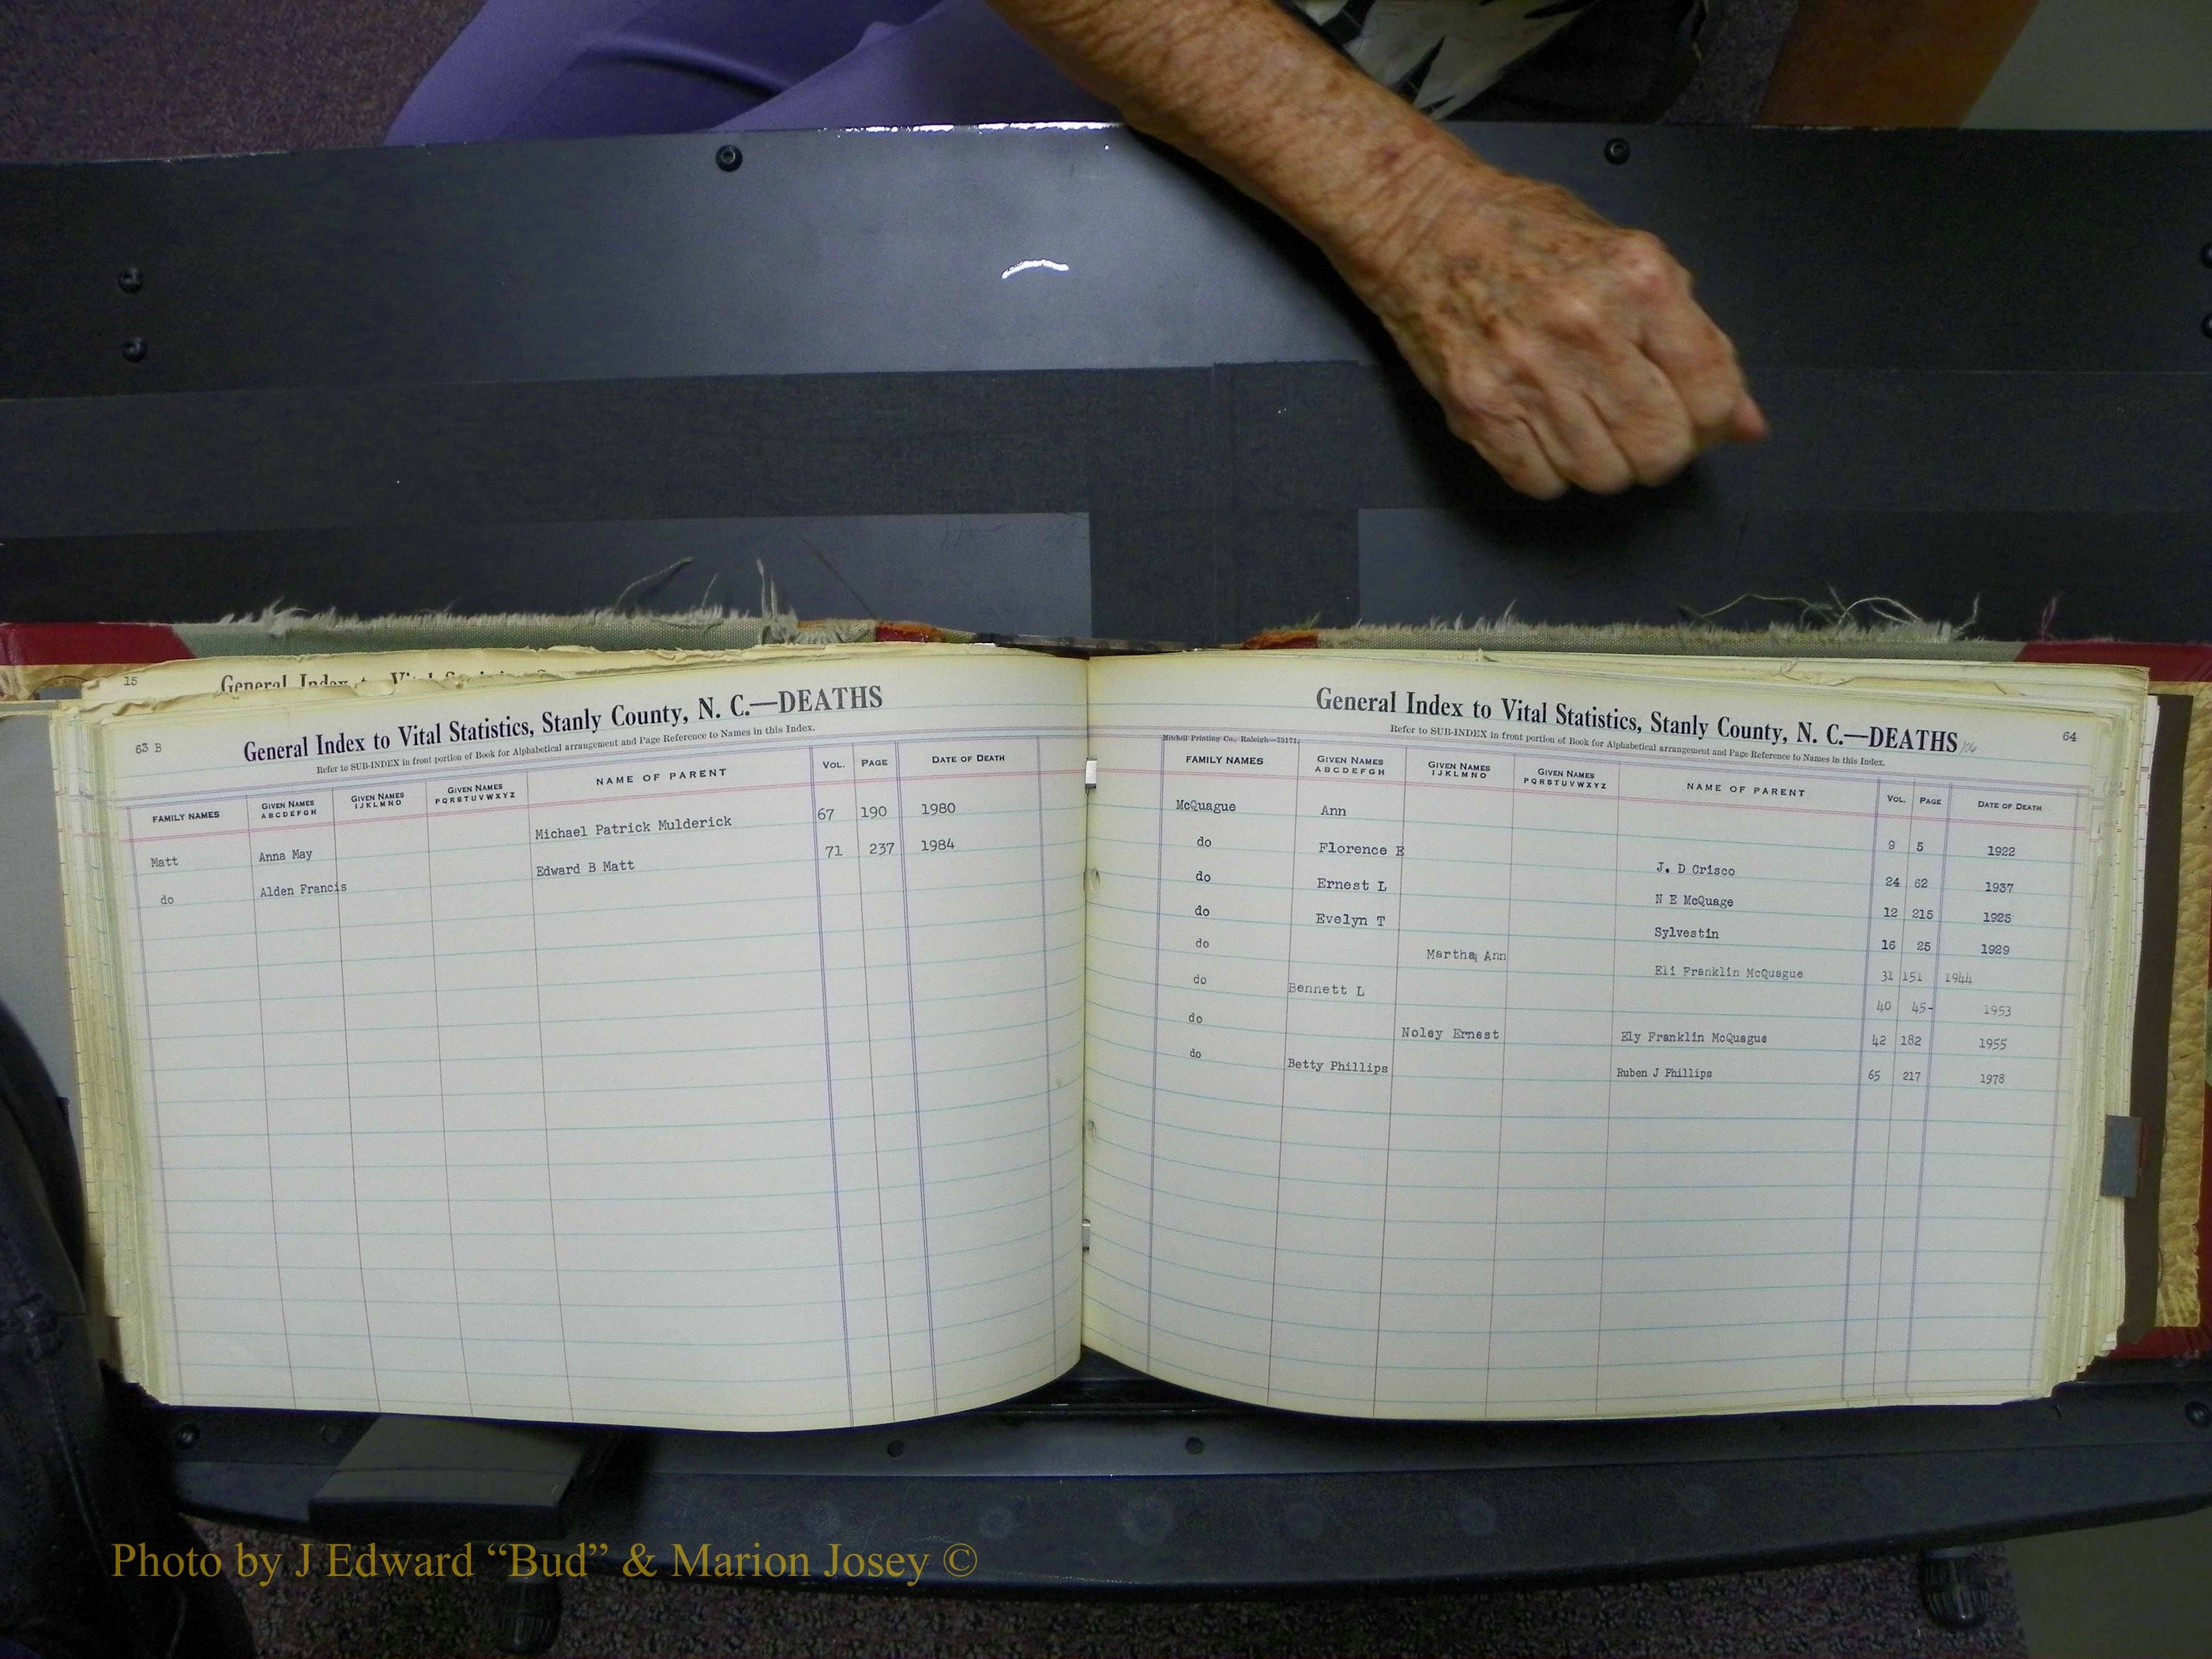 15
General Index to Vital Statistics
63 B
General Index to Vital Statistics, Stanly County, N. C.—DEATHS
Refer to SUB-INDEX in front portion of Book for Alphabetical arrangement and Page Reference to Names in this Index.
FAMILY NAMES GIVEN NAMES ABCDEFGH GIVEN NAMES IJKLMNO GIVEN NAMES PQRSTUVWXYZ NAME OF PARENT VOL. PAGE DATE OF DEATH
Matt Anna May Michael Patrick Mulderick 67 190 1980
do Alden Francis Edward B Matt 71 237 1984
General Index to Vital Statistics, Stanly County, N. C.—DEATHS
64
Refer to SUB-INDEX in front portion of Book for Alphabetical arrangement and Page Reference to Names in this Index.
Mitchell Printing Co., Raleigh—75171
FAMILY NAMES GIVEN NAMES ABCDEFGH GIVEN NAMES IJKLMNO GIVEN NAMES PQRSTUVWXYZ NAME OF PARENT VOL. PAGE DATE OF DEATH
McQuague Ann 9 5 1922
do Florence E J. D Crisco 24 62 1937
do Ernest L N E McQuage 12 215 1925
do Evelyn T Sylvestin 16 25 1929
do Martha Ann Eli Franklin McQuague 31 151 1944
do Bennett L 40 45- 1953
do Noley Ernest Ely Franklin McQuague 42 182 1955
do Betty Phillips Ruben J Phillips 65 217 1978
Photo by J Edward “Bud” & Marion Josey ©